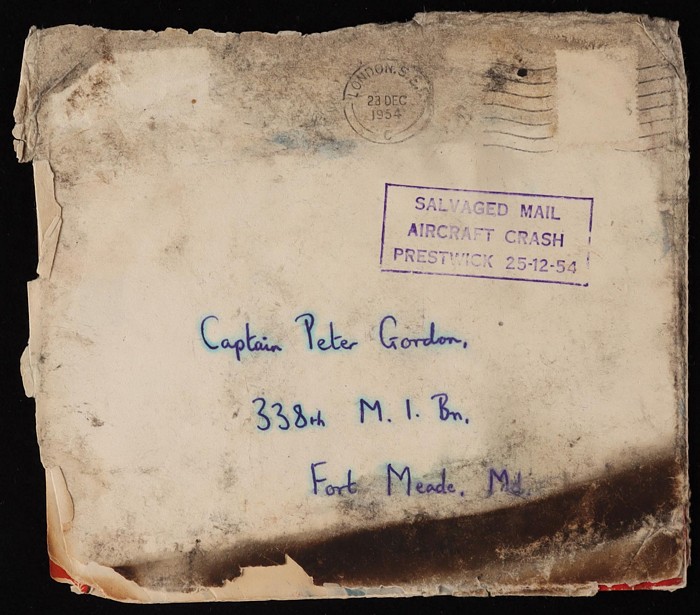 LONDON. S.E.
23 DEC
1954
C
SALVAGED MAIL
AIRCRAFT CRASH
PRESTWICK 25-12-54
Captain Peter Gordon,
338th M. I. Bn,
Fort Meade, Md.